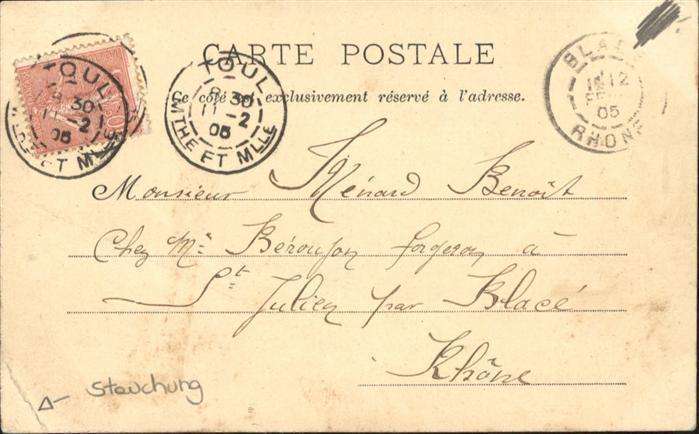 CARTE POSTALE
Ce côté exclusivement réservé à l'adresse.
TOUL
8 30
11 -2
05
MTHE ET MLLE
TOUL
30
11 -2
05
ET MLLE
BLA
12
05
RHONE
Monsieur Ménard Benoît
Chez Mr forgeron à
St Julien par Blacé
Rhône
Stauchung